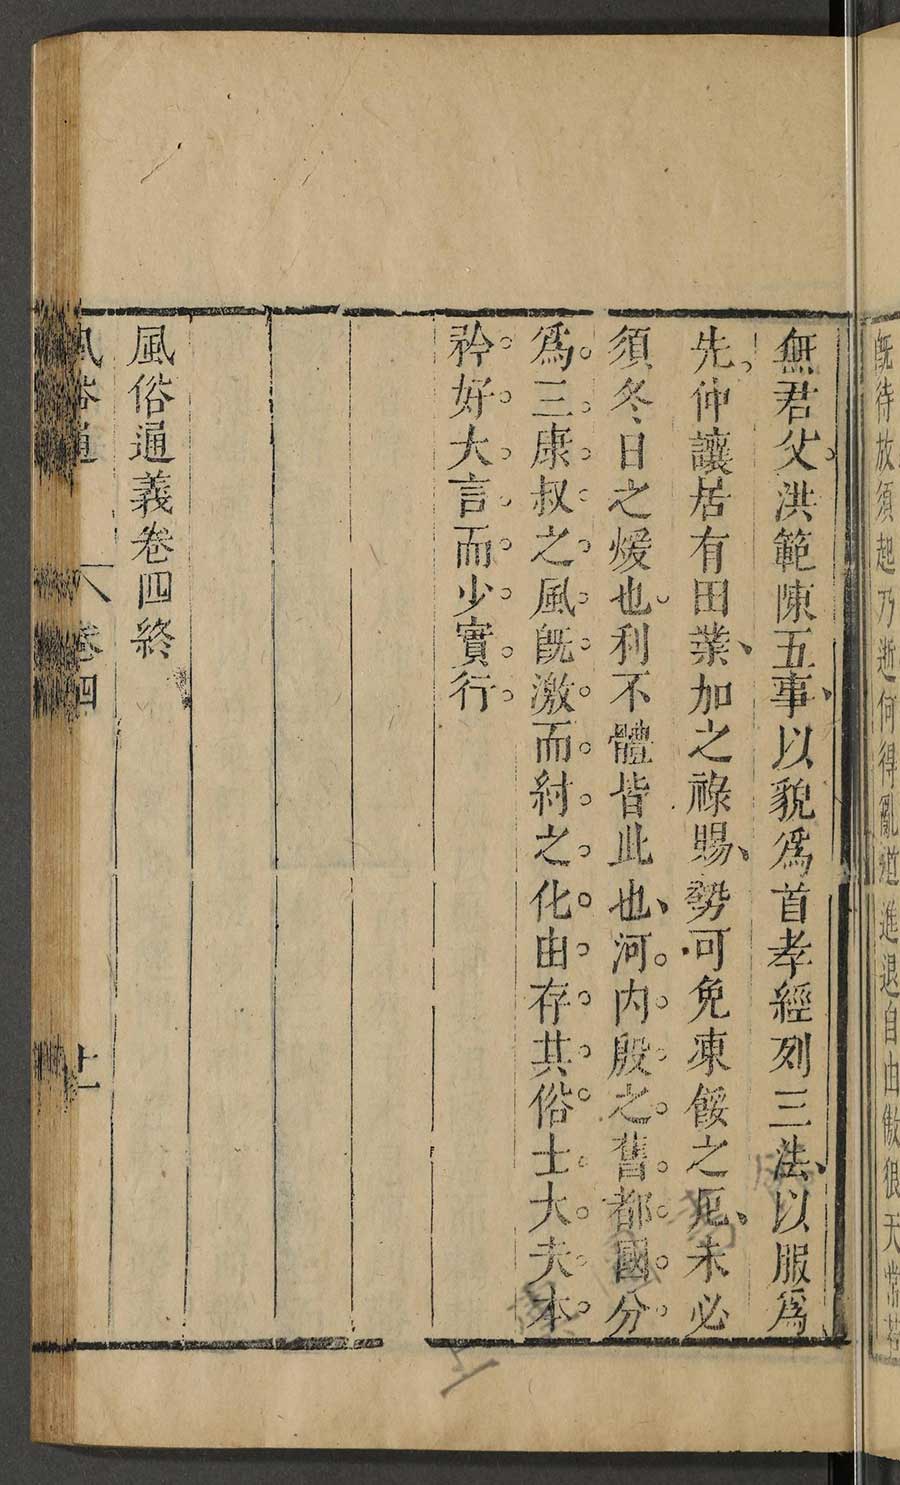 既待放須起乃逝何得亂道進退自由傲狠天常若
無君父洪範陳五事以貌爲首孝經列三法以服爲
先仲讓居有田業加之祿賜勢可免凍餒之厄未必
須冬日之煖也利不體皆此也河内殷之舊都國分
爲三康叔之風旣激而紂之化由存其俗士大夫本
矜好大言而少實行
風俗通義卷四終
風俗通
卷四